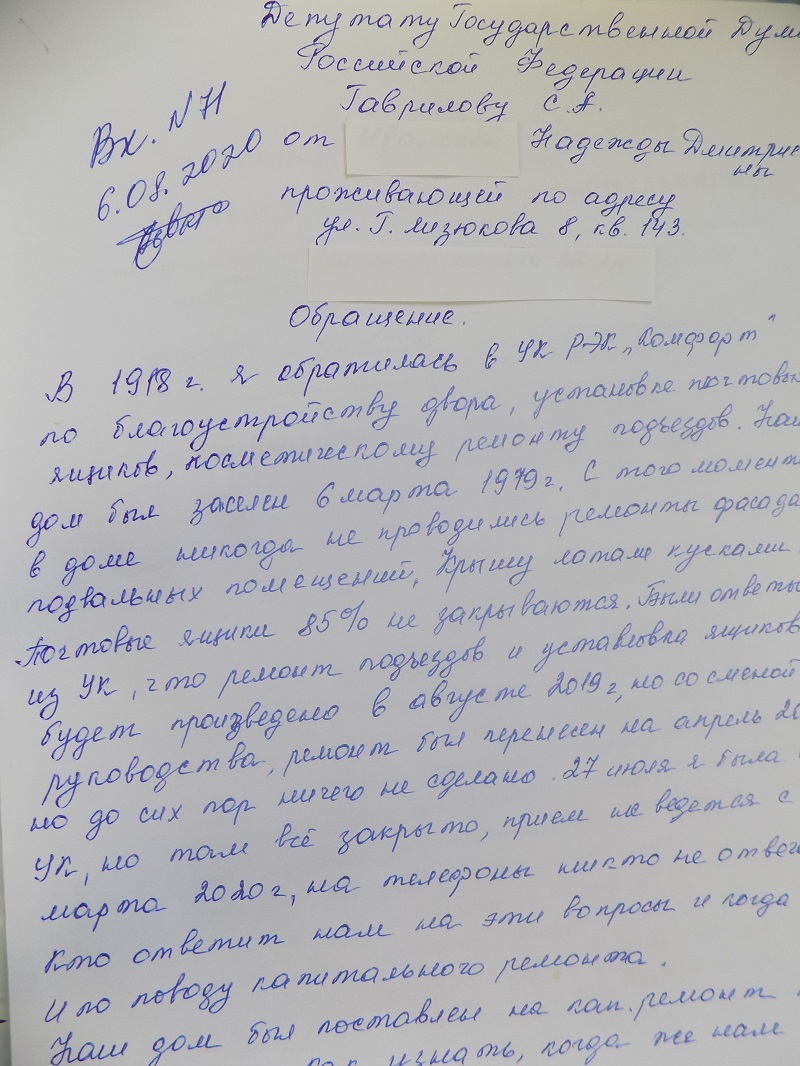 Депутату Государственной Дум
Российской Федерации
Гаврилову С.А.
Вх. №71
6.08.2020
от Надежды Дмитрие
ны
проживающей по адресу
ул. Г. Лизюкова 8, кв. 143.
Обращение.
В 1918 г. я обратилась в УК РЭК „Комфорт"
по благоустройству двора, установке почтовы
ящиков, косметическому ремонту подъездов. Наш
дом был заселен 6 марта 1979 г. С того момент
в доме никогда не проводились ремонты фасада
подвальных помещений. Крышу латали кусками
Почтовые ящики 85% не закрываются. Были ответы
из УК, что ремонт подъездов и установка ящиков
будет произведено в августе 2019 г, но со сменой
руководства, ремонт был перенесен на апрель 20
но до сих пор ничего не сделано. 27 июля я была
УК, но там всё закрыто, прием не ведется с
марта 2020 г, на телефоны никто не отвеч
Кто ответит нам на эти вопросы и когда
И по поводу капитального ремонта.
Наш дом был поставлен на кап. ремонт
узнать, когда же нам